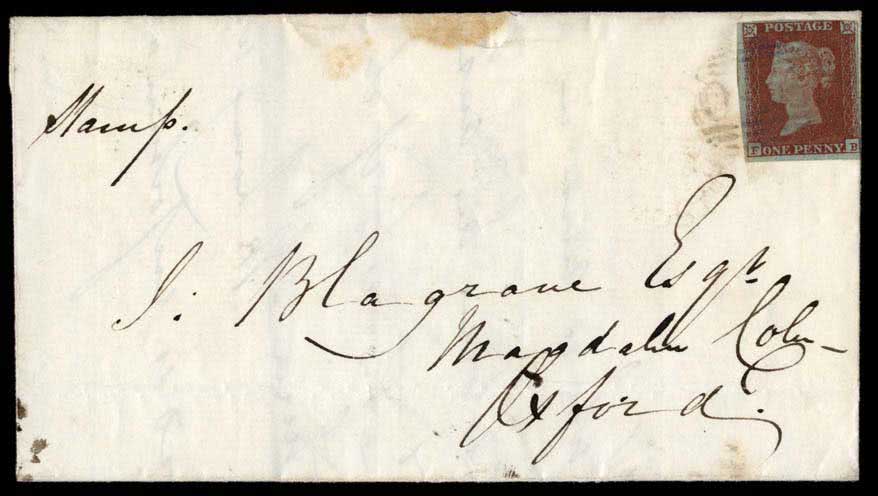 POSTAGE
F ONE PENNY. B
Stamp.
J: Blagrave Esqr.
Magdalen Coll
Oxford.